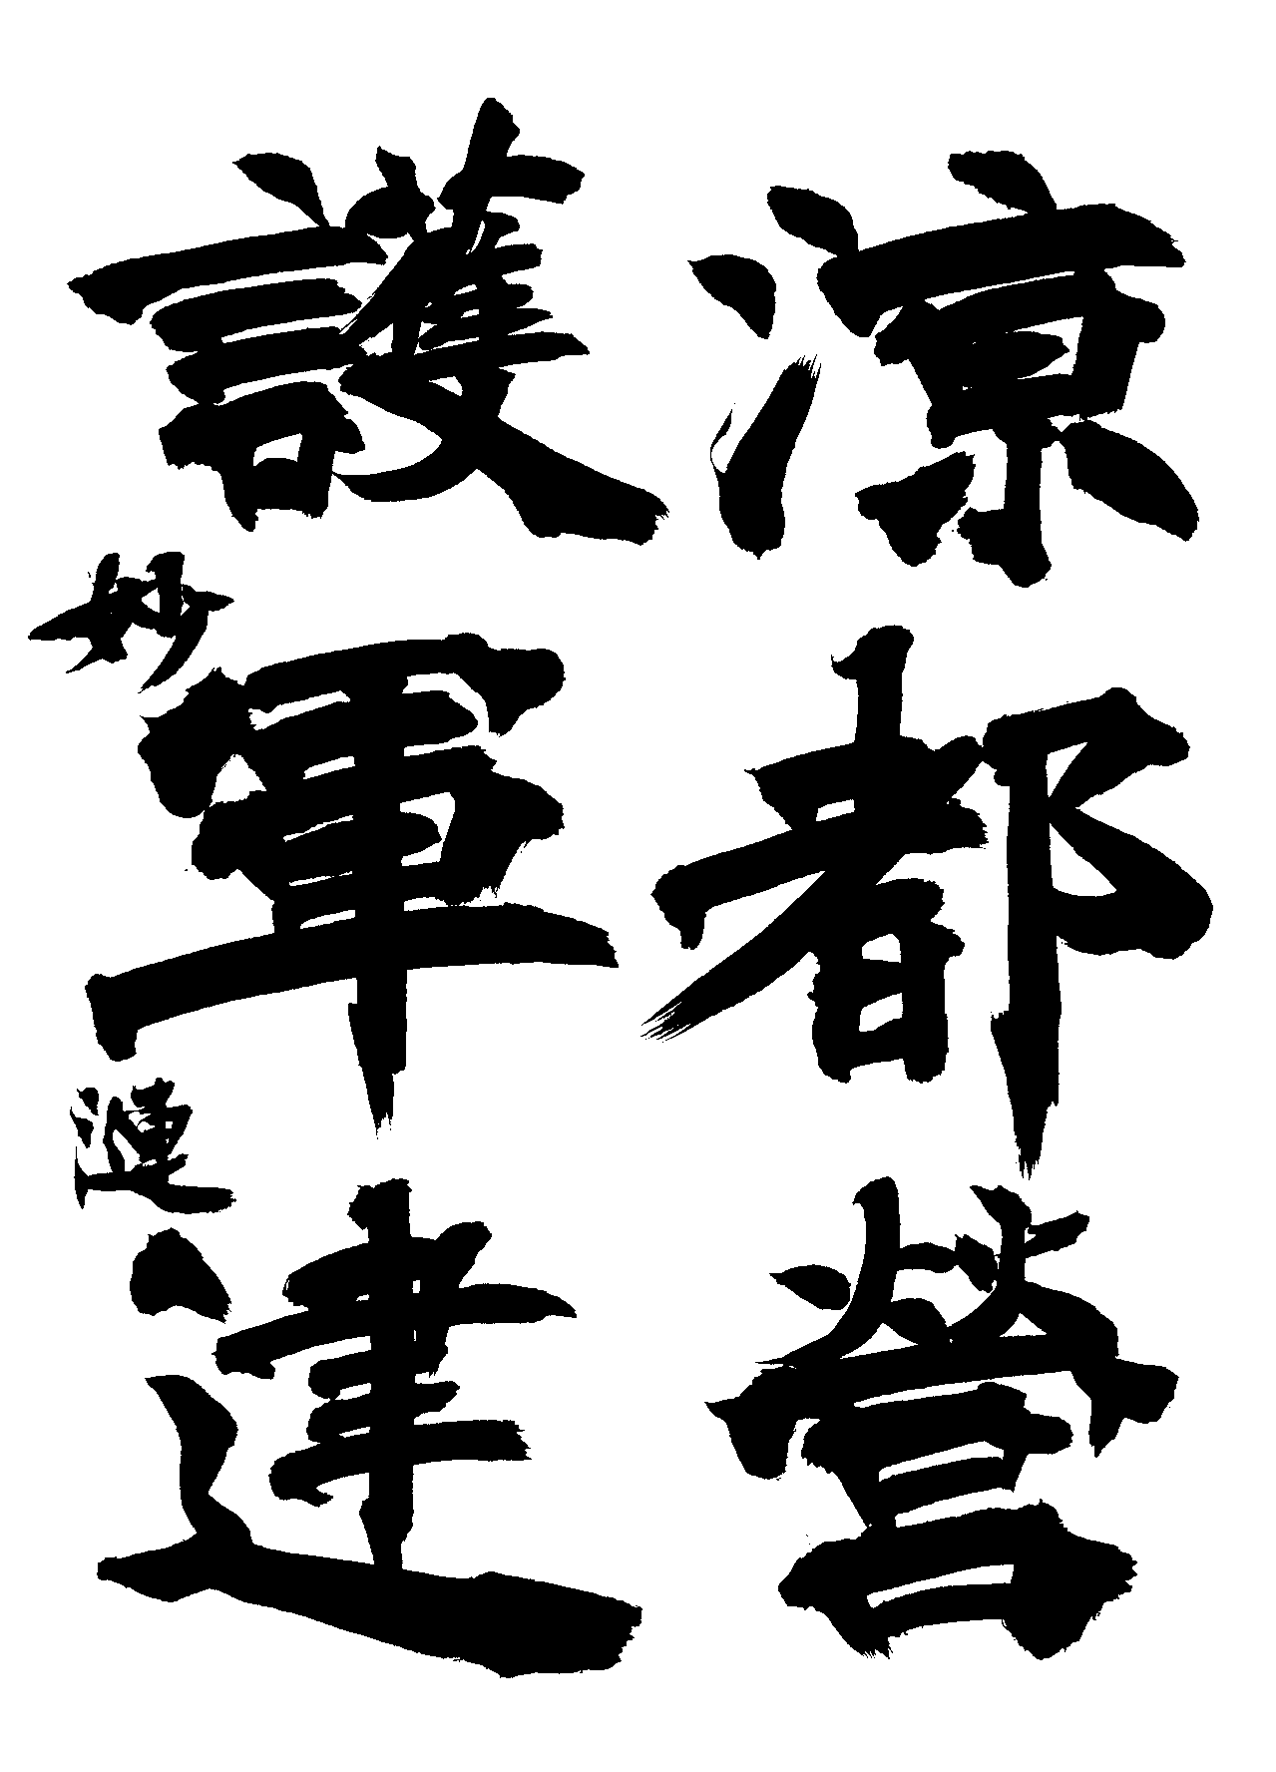 涼都營
護軍建
妙漣